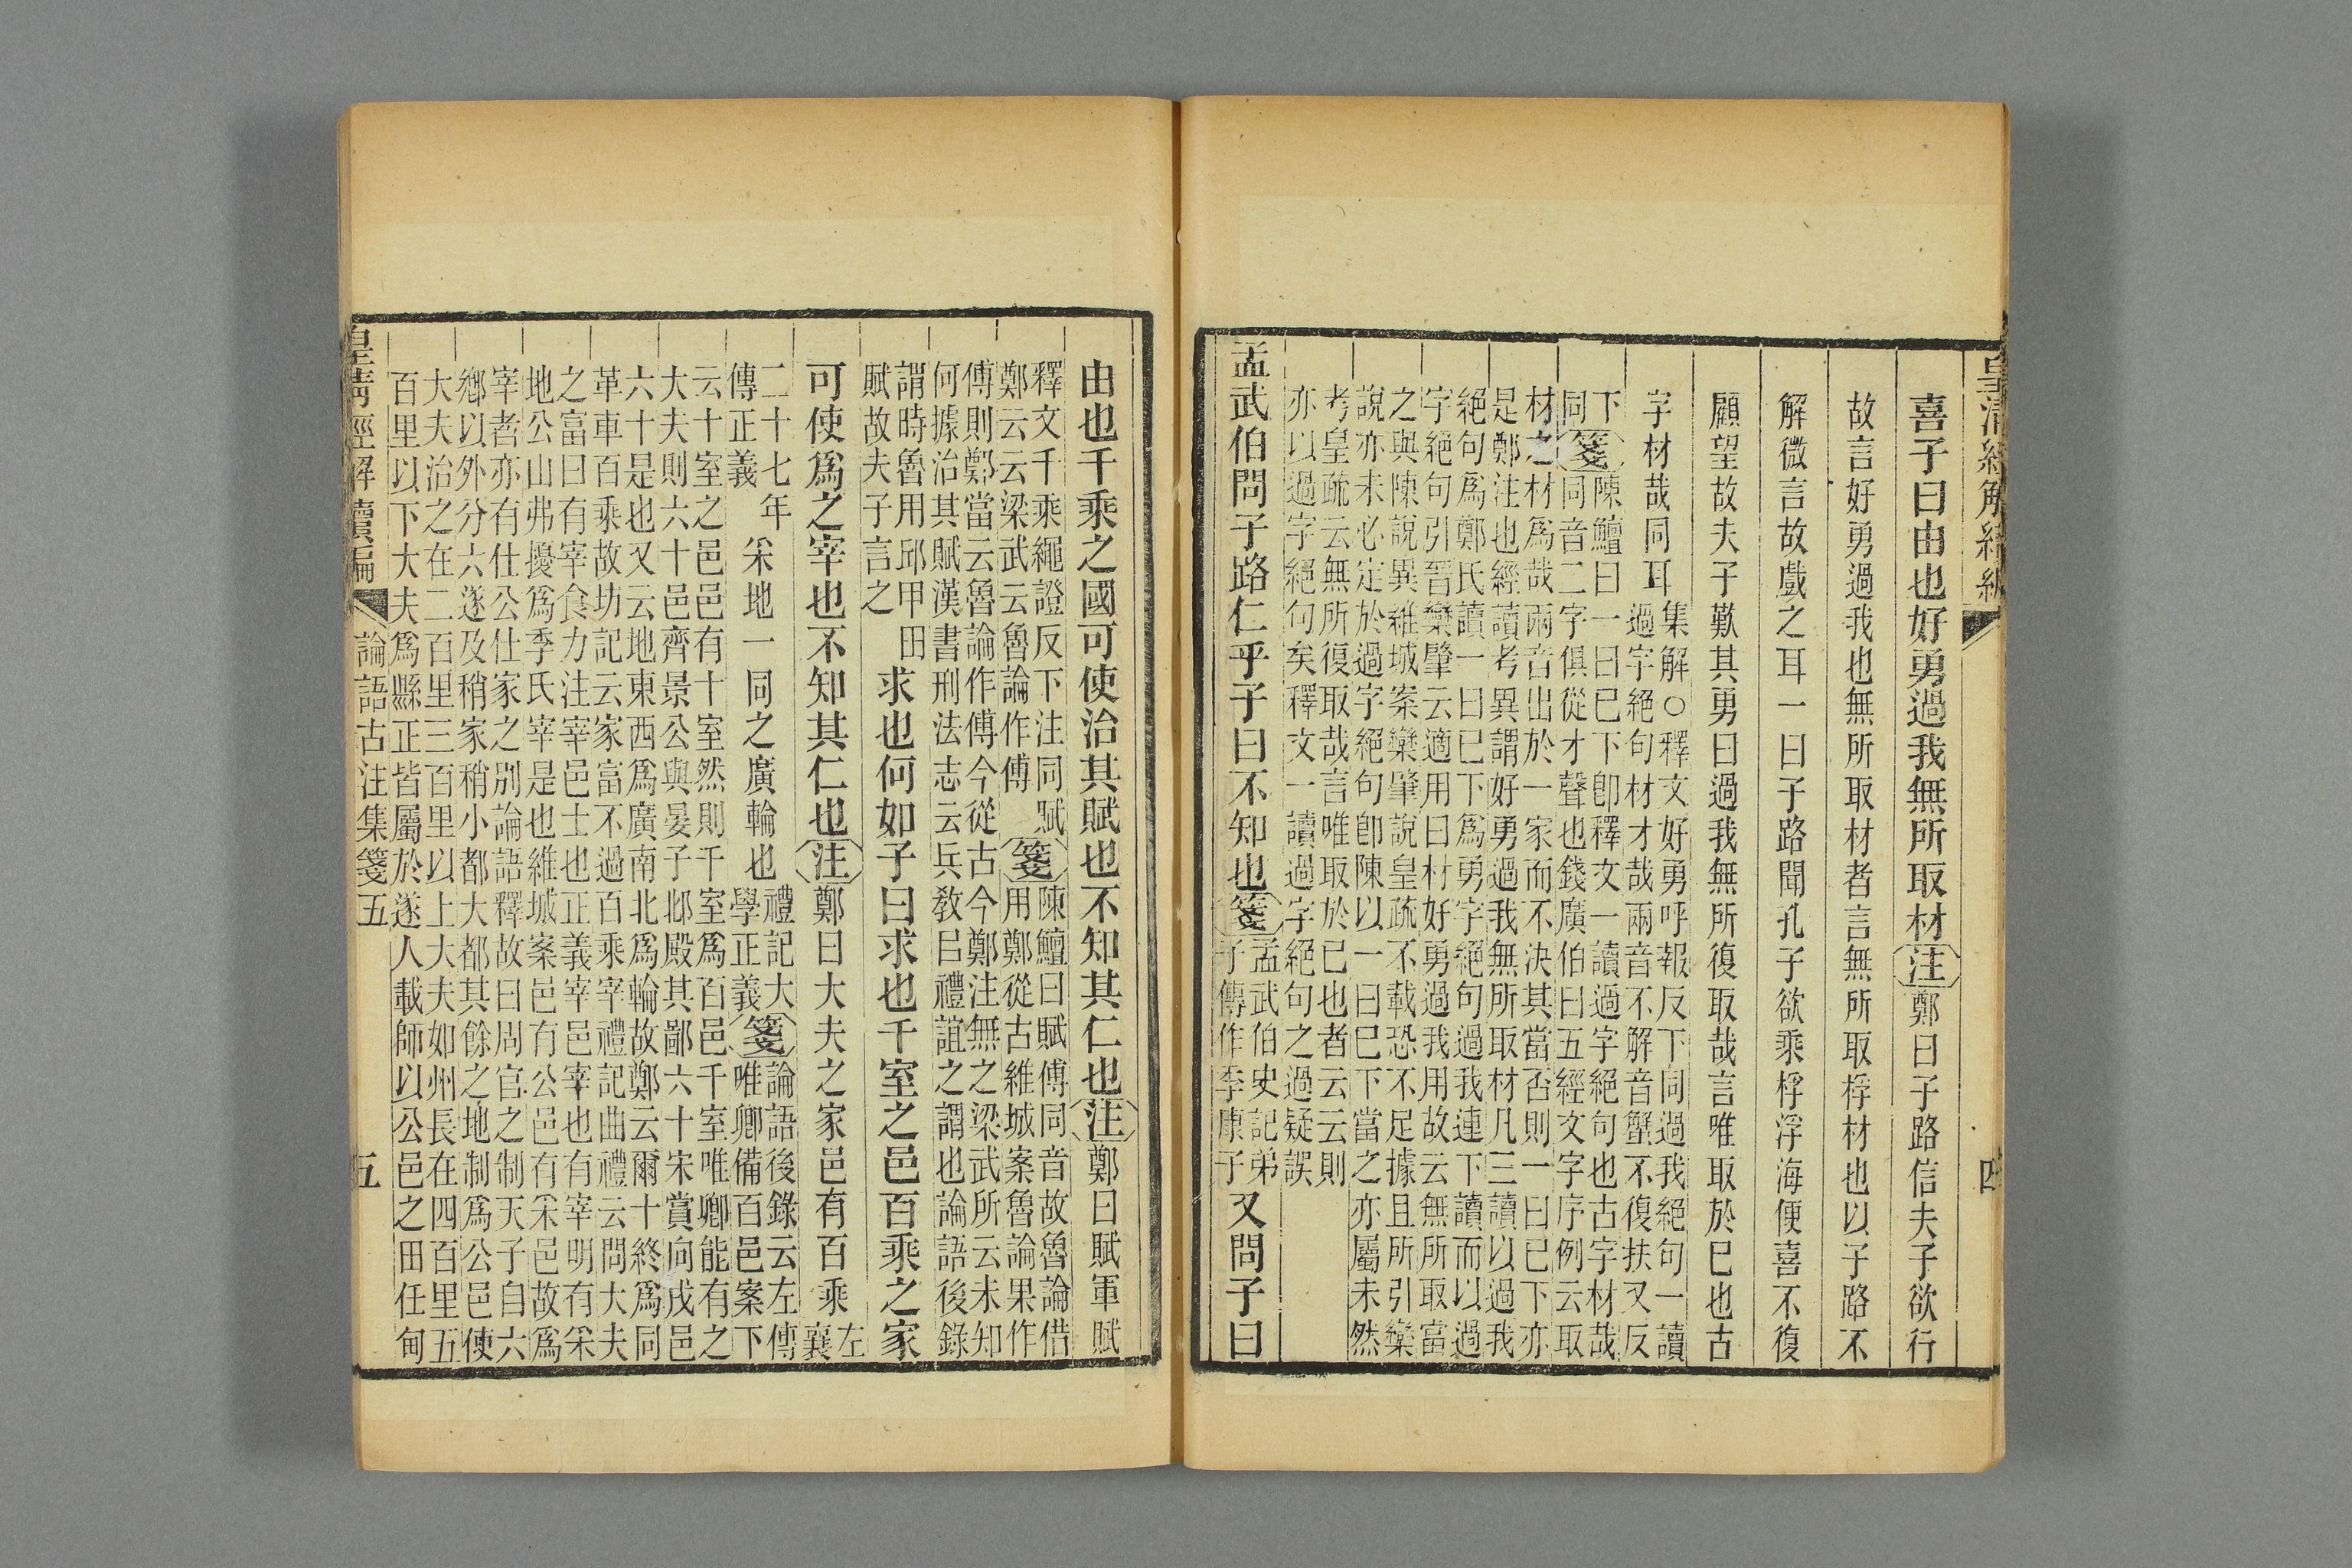 皇清經解續編
四
喜子曰由也好勇過我無所取材注鄭曰子路信夫子欲行
故言好勇過我也無所取材者言無所取桴材也以子路不
解微言故戲之耳一曰子路聞孔子欲乘桴浮海便喜不復
顧望故夫子歎其勇曰過我無所復取哉言唯取於巳也古
字材哉同耳集解○釋文好勇呼報反下同過我絕句一讀
過字絕句材才哉兩音不解音蟹不復扶又反
下陳鱣曰一曰巳下卽釋文一讀過字絕句也古字材哉
同箋同音二字俱從才聲也錢廣伯曰五經文字序例云取
材之材爲哉兩音出於一家而不決其當否則一曰巳下亦
是鄭注也經讀考異謂好勇過我無所取材凡三讀以過我
絕句爲鄭氏讀一曰巳下爲勇字絕句過我連下讀而以過
字絕句引晉欒肇云適用曰材好勇過我用故云無所取當
之與陳說異維城案欒肇說皇疏不載恐不足據且所引欒
說亦未必定於過字絕句卽陳以一曰巳下當之亦屬未然
考皇疏云無所復取哉言唯取於巳也者云云則
亦以過字絕句矣釋文一讀過字絕句之過疑誤
孟武伯問子路仁乎子曰不知也箋孟武伯史記弟
子傳作季康子又問子曰
由也千乘之國可使治其賦也不知其仁也注鄭曰賦軍賦
釋文千乘繩證反下注同賦
鄭云云梁武云魯論作傅箋陳鱣曰賦傅同音故魯論借
用鄭從古維城案魯論果作
傅則鄭當云魯論作傅今從古今鄭注無之梁武所云未知
何據治其賦漢書刑法志云兵敎㠯禮誼之謂也論語後錄
謂時魯用邱甲田
賦故夫子言之求也何如子曰求也千室之邑百乘之家
可使爲之宰也不知其仁也注鄭曰大夫之家邑有百乘左
襄
二十七年
傳正義采地一同之廣輪也禮記大
學正義箋論語後錄云左傳
唯卿備百邑案下
云十室之邑邑有十室然則千室爲百邑千室唯卿能有之
大夫則六十邑齊景公與晏子邶殿其鄙六十宋賞向戌邑
六十是也又云地東西爲廣南北爲輪故鄭云爾十終爲同
革車百乘故坊記云家富不過百乘宰禮記曲禮云問大夫
之富曰有宰食力注宰邑士也正義宰邑宰也有宰明有采
地公山弗擾爲季氏宰是也維城案邑有公邑有采邑故爲
宰者亦有仕公仕家之別論語釋故曰周官之制天子自六
鄉以外分六遂及稍家稍小都大都其餘之地制爲公邑使
大夫治之在二百里三百里以上大夫如州長在四百里五
百里以下大夫爲縣正皆屬於遂人載師以公邑之田任甸
皇淸經解續編
論語古注集箋五
五